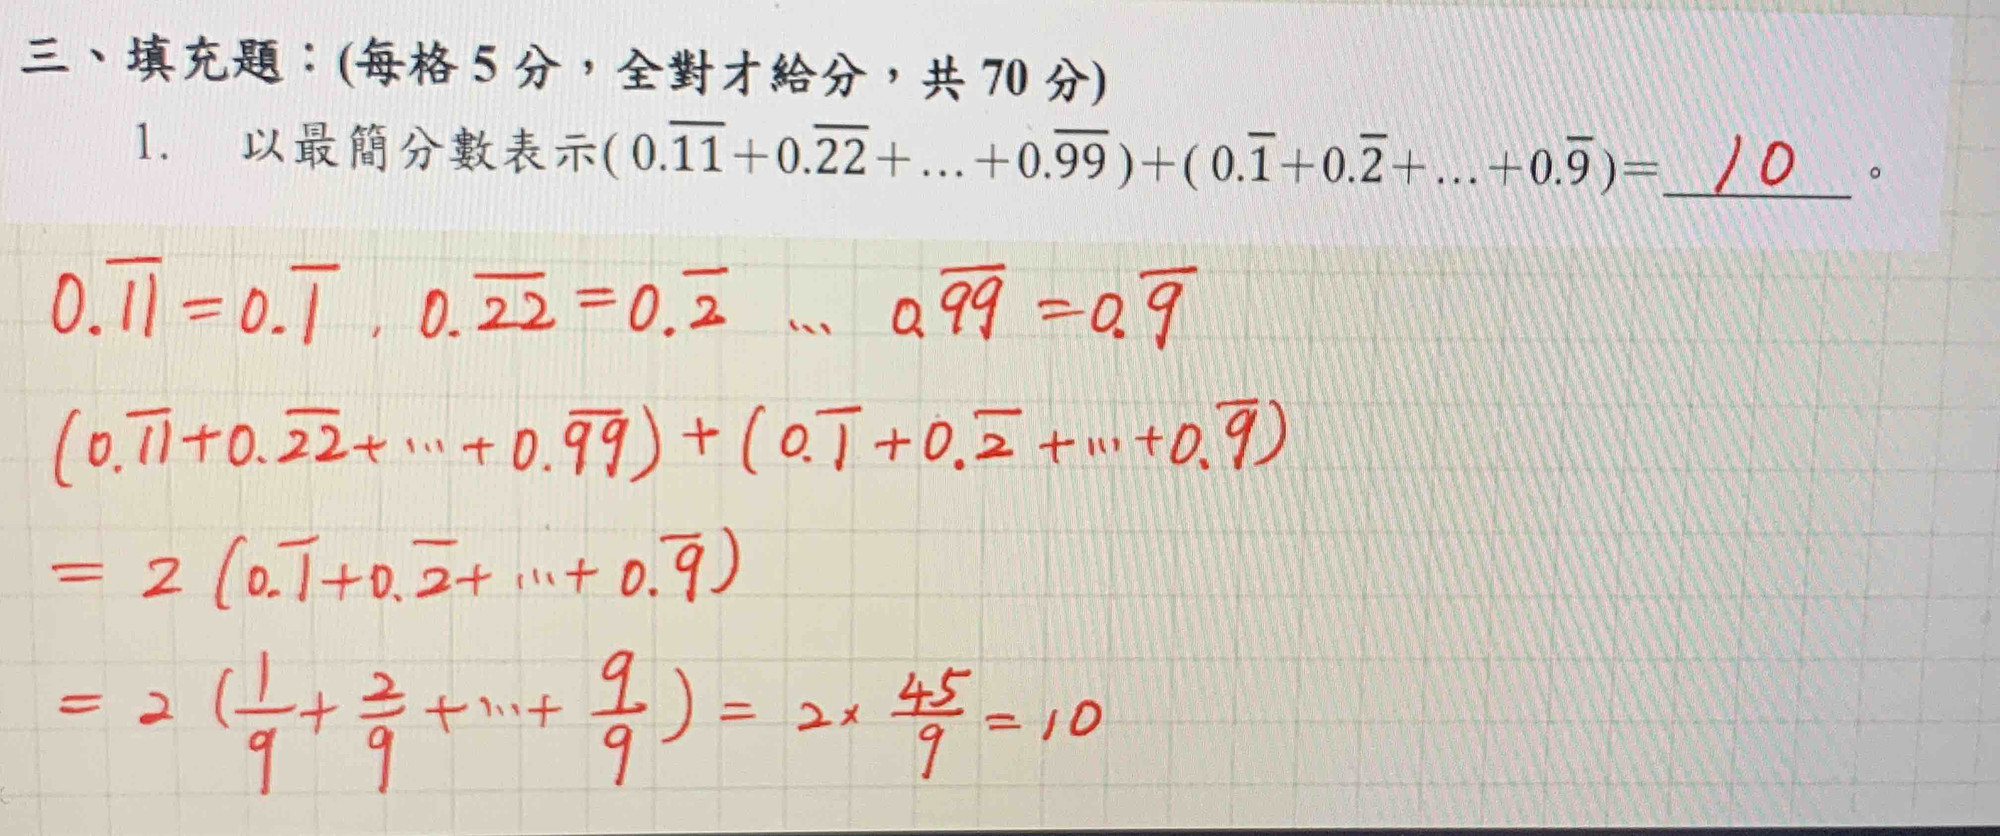 三、填充題：(每格 5 分，全對才給分，共 70 分)
1. 以最簡分數表示( 0.1̅1̅+0.2̅2̅+…+0.9̅9̅ )+( 0.1̅+0.2̅+…+0.9̅ )= 10 。
0.1̅1̅=0.1̅ , 0.2̅2̅=0.2̅ … 0.9̅9̅=0.9̅
(0.1̅1̅+0.2̅2̅+…+0.9̅9̅)+(0.1̅+0.2̅+…+0.9̅)
= 2 (0.1̅+0.2̅+…+0.9̅)
= 2 (1/9+2/9+…+9/9) = 2×45/9 = 10